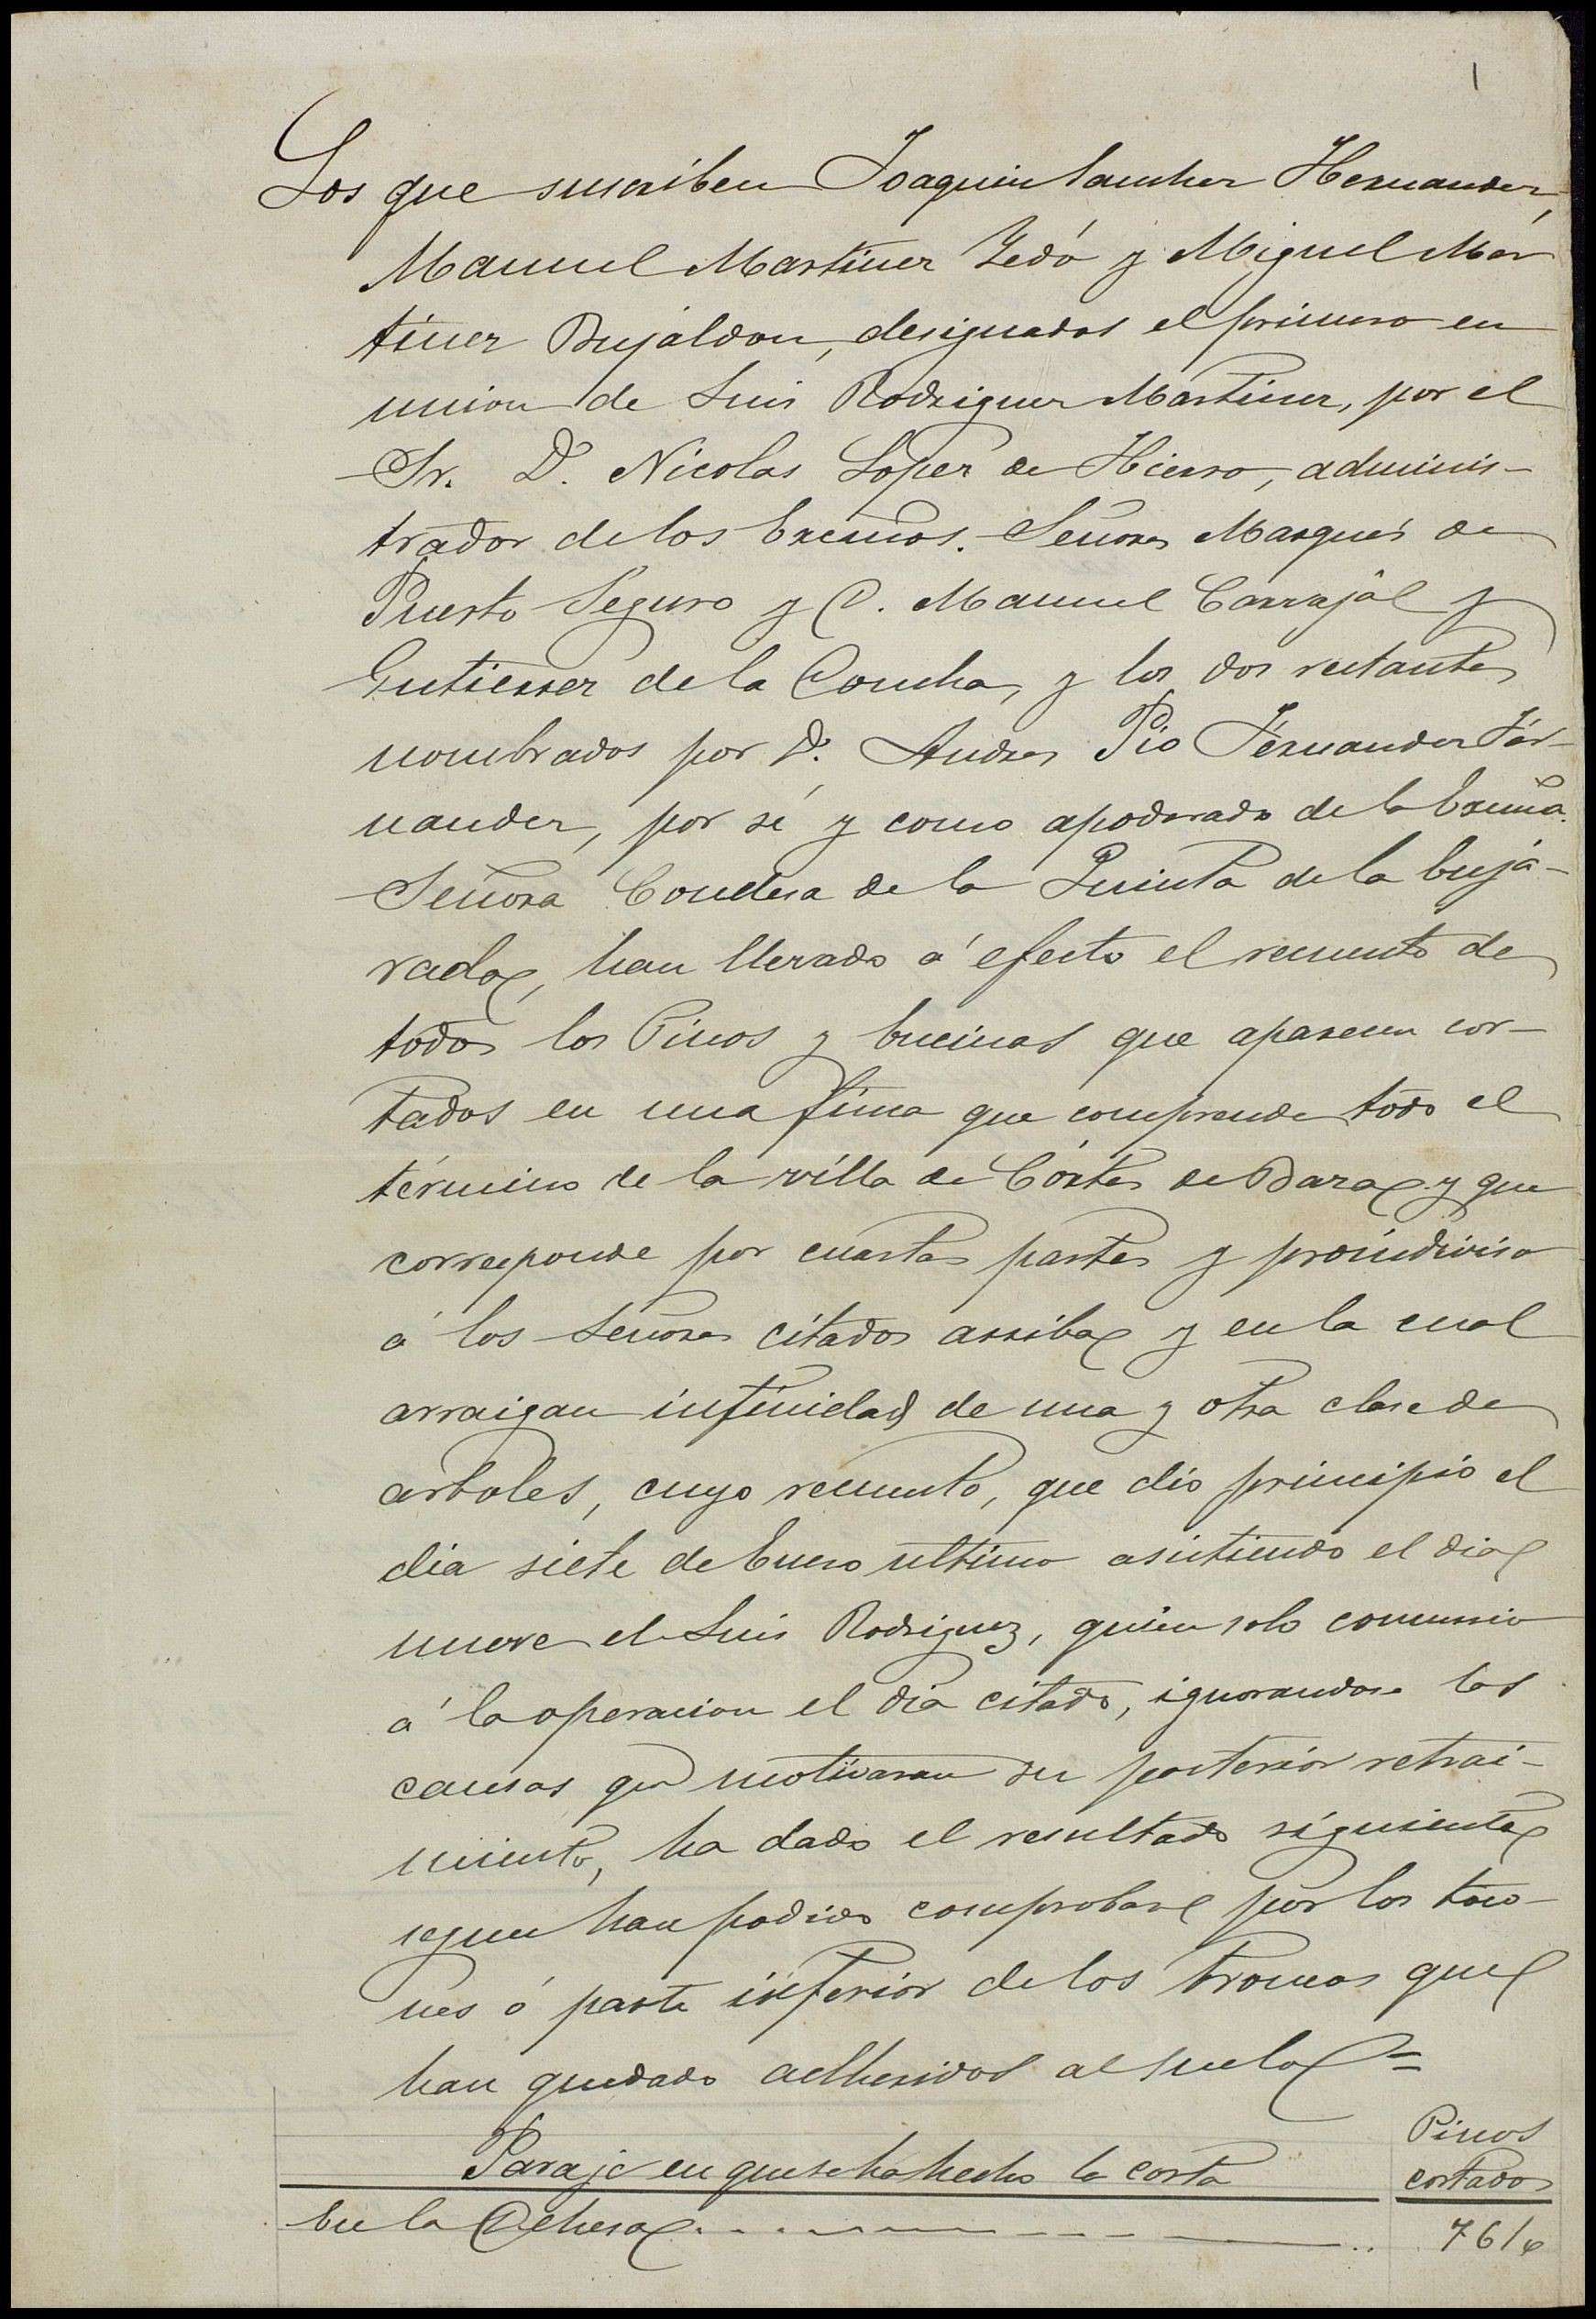 1
Los que suscriben Joaquin Sanchez Hernandez,
Manuel Martinez Yedó y Miguel Mar
tinez Bujaldon, designados el primero en
union de Luis Rodriguez Martinez, por el
Sr. D. Nicolas Lopez de Hierro, adminis-
trador de los Excmos. Señores Marqués de
Puerto Seguro y D. Manuel Carvajal y
Gutierrez de la Concha, y los dos restantes
nombrados por D. Andres Pio Fernandez Fer-
nandez, por sí y como apoderado de la Excma.
Señora Condesa de la Quinta de la Enja-
rada, han llevado á efecto el recuento de
todos los Pinos y Encinas que aparecen cor-
tados en una finca que comprende todo el
término de la villa de Córtes de Baza y que
corresponde por cuartas partes y proindiviso
á los Señores citados arriba y en la cual
arraigan infinidad de una y otra clase de
arboles, cuyo recuento, que dio principio el
dia siete de Enero ultimo asistiendo el dia
nueve el Luis Rodriguez, quien solo concurrio
á la operacion el dia citado, ignorandose las
causas que motivaran su posterior retrai-
miento, ha dado el resultado siguiente
segun han podido comprobar por los toco
nes ó parte inferior de los troncos que
han quedado adheridos al suelo=
Paraje en que se ha hecho la corta
Pinos
cortados
En la Dehesa